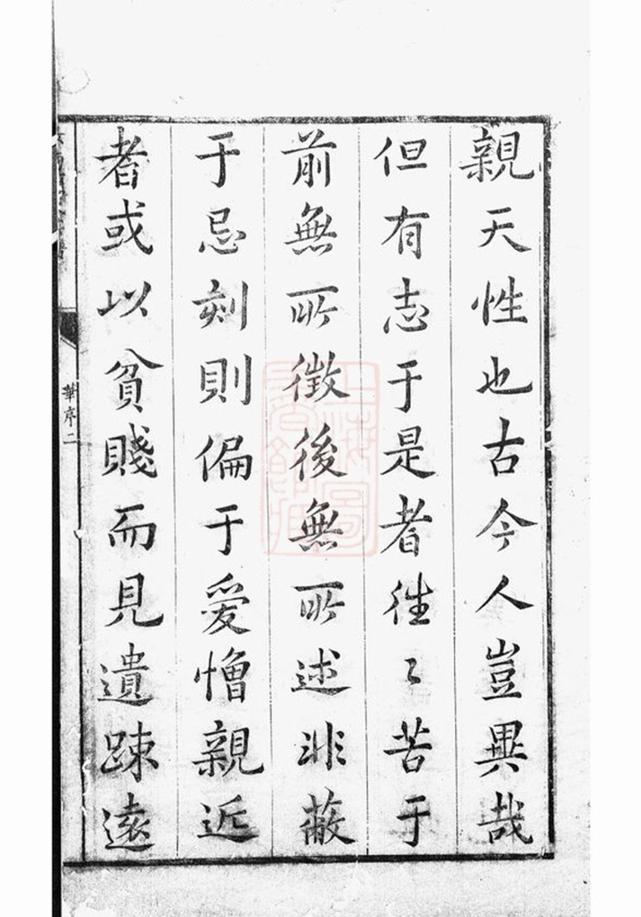 親天性也古今人豈異哉
但有志于是者徃〻苦于
前無所徵後無所述非蔽
于忌刻則偏于愛憎親近
者或以貧賤而見遺踈遠
華序二